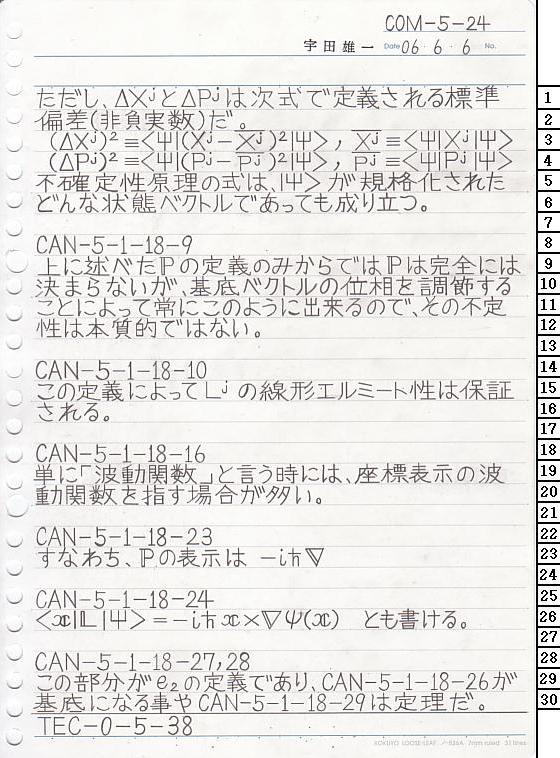 COM-5-24
宇田雄一 Date 06・6・6 No.
ただし、ΔXʲとΔPʲは次式で定義される標準
偏差(非負実数)だ。
(ΔXʲ)²≡<Ψ|(Xʲ-X̅ʲ)²|Ψ>, X̅ʲ≡<Ψ|Xʲ|Ψ>
(ΔPʲ)²≡<Ψ|(Pʲ-P̅ʲ)²|Ψ>, P̅ʲ≡<Ψ|Pʲ|Ψ>
不確定性原理の式は、|Ψ>が規格化された
どんな状態ベクトルであっても成り立つ。
CAN-5-1-18-9
上に述べたℙの定義のみからではℙは完全には
決まらないが、基底ベクトルの位相を調節する
ことによって常にこのように出来るので、その不定
性は本質的ではない。
CAN-5-1-18-10
この定義によってLʲの線形エルミート性は保証
される。
CAN-5-1-18-16
単に「波動関数」と言う時には、座標表示の波
動関数を指す場合が多い。
CAN-5-1-18-23
すなわち、ℙの表示は -iℏ∇
CAN-5-1-18-24
<x|𝕃|Ψ>=-iℏx×∇Ψ(x) とも書ける。
CAN-5-1-18-27,28
この部分がe₂の定義であり、CAN-5-1-18-26が
基底になる事やCAN-5-1-18-29は定理だ。
TEC-0-5-38
KOKUYO LOOSE-LEAF ノ-836A 7mm ruled 31 lines
1
2
3
4
5
6
7
8
9
10
11
12
13
14
15
16
17
18
19
20
21
22
23
24
25
26
27
28
29
30